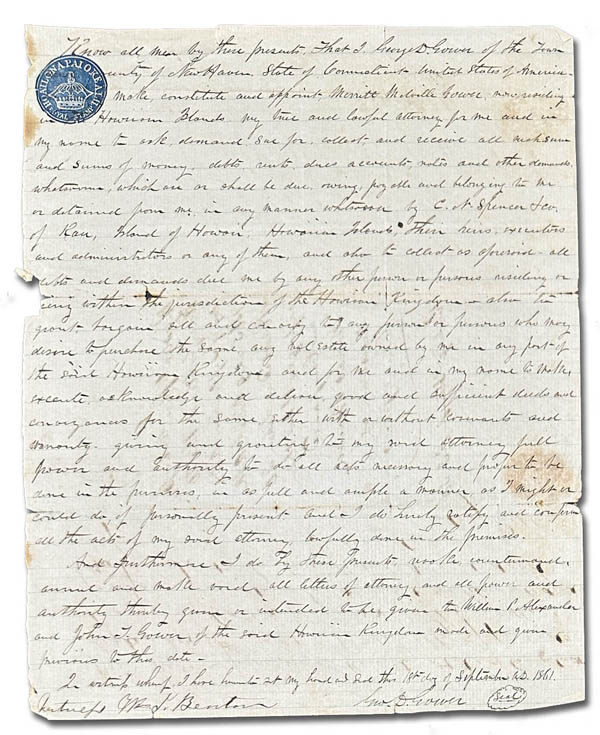 Know all men by these presents, That I, George D. Gower of the Town
County of New Haven, State of Connecticut United States of America
make, constitute and appoint, Merritt Melville Gower, now residing
in Hawaiian Islands my true and lawful attorney for me and in
my name to ask, demand, sue for, collect and receive all such sum
and sums of money, debts rents, dues accounts, notes and other demands
whatsoever, which are or shall be due, owing, payable and belonging to me
or detained from me, in any manner whatsoever by C. N. Spencer & co.
of Kau, Island of Howaii, Howaiian Islands. Their heirs, executors
and administrators or any of them, and also to collect as aforesaid all
debts and demands due me by any other person or persons residing or
being within the jurisdiction of the Howiian Kingdom - also to
grant bargain sell and convey to any person or persons who may
desire to purchase the same, any real estate owned by me in any part of
the said Howiian Kingdom and for me and in my name to make,
execute, acknowledge and deliver good and sufficient deeds and
conveyances for the same, either with or without covenants and
warranty giving and granting to my said attorney full
power and authority to do all acts necessary and proper to be
done in the premises, in as full and ample a manner, as I might or
could do if personally present and I do hereby ratify and confirm
all the acts of my said attorney, lawfully done in the premises.
And furthermore I do by these presents, revoke, countermand,
annul and make void all letters of attorney, and all power and
authority thereby given or intended to be given to William P. Alexander
and John T. Gower, of the said Howiian Kingdom made and given
previous to this date -
In witness whereof, I have hereunto set my hand and seal this 18th day of September A.D. 1861.
Witness Wm. T. Benton Geo. D. Gower Seal